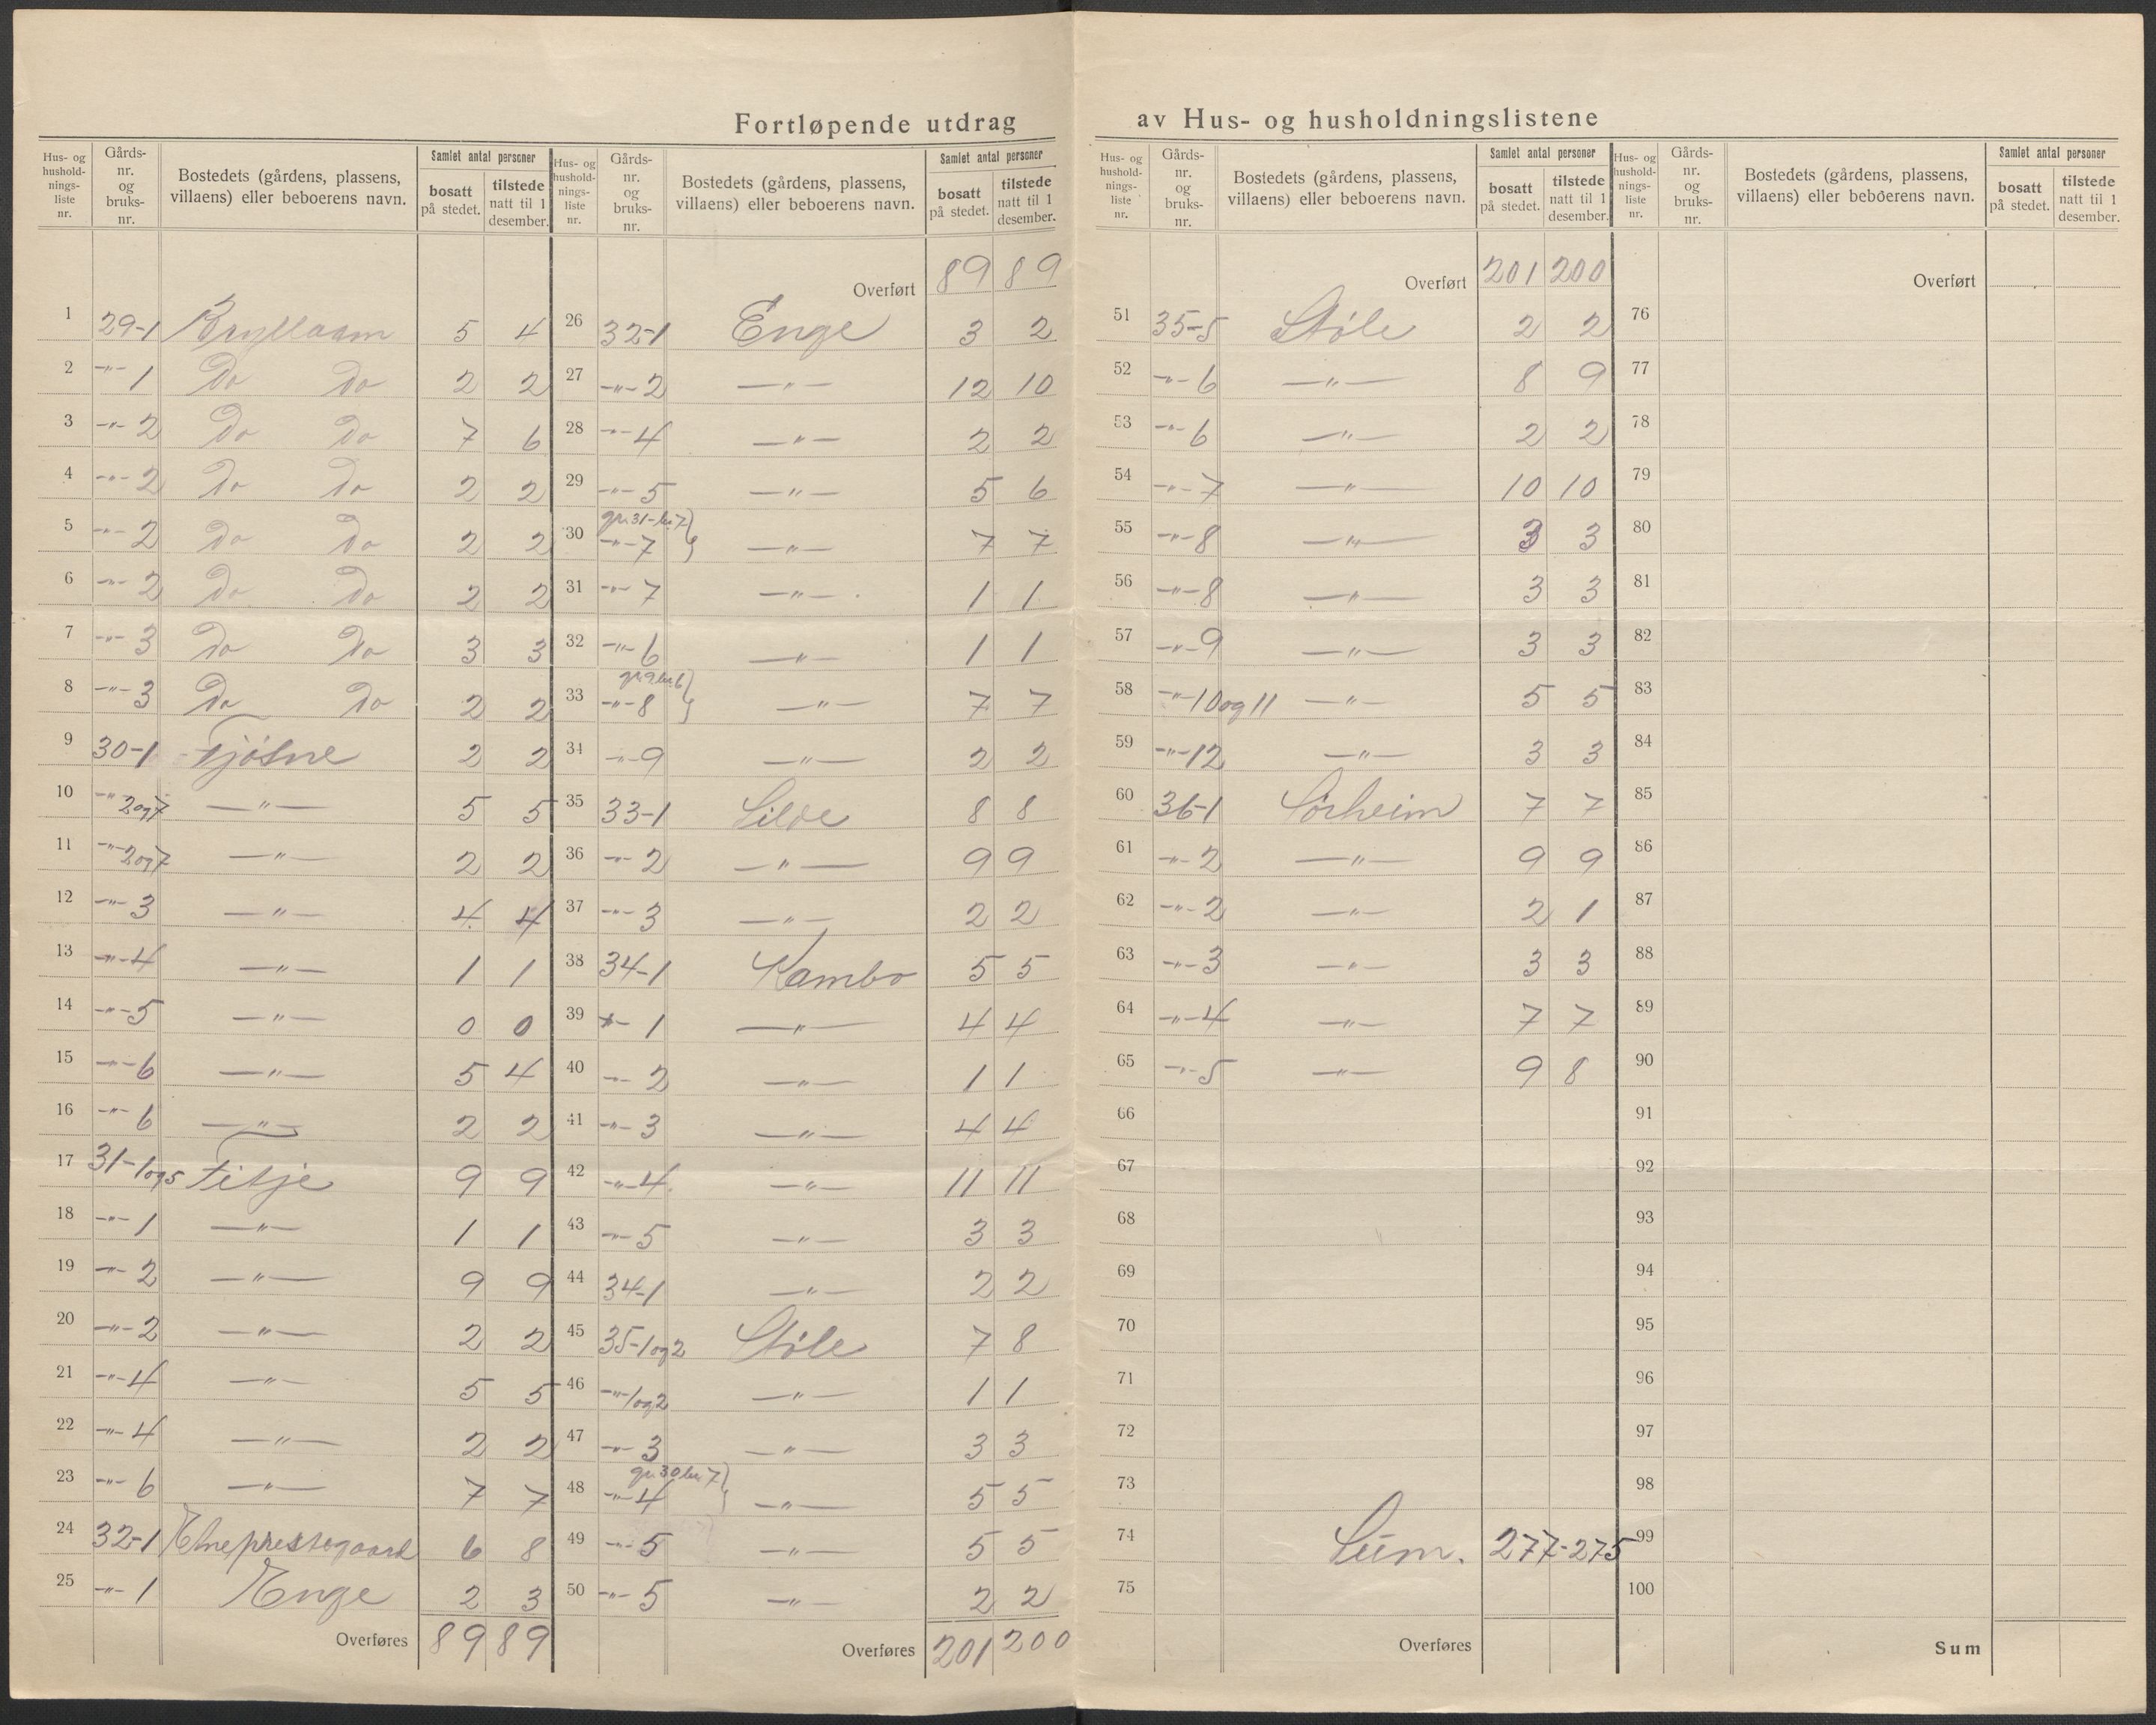 Fortløpende utdrag av Hus- og husholdningslistene
Hus- og hushold-nings-liste nr. Gårds-nr. og bruks-nr. Bostedets (gårdens, plassens, villaens) eller beboerens navn. Samlet antal personer bosatt på stedet. tilstede natt til 1 desember.
1 29-1 5 4
2 -"- 1 Do Do 2 2
3 -"- 2 Do Do 7 6
4 -"- 2 Do Do 2 2
5 -"- 2 Do Do 2 2
6 -"- 2 Do Do 2 2
7 -"- 3 Do Do 3 3
8 -"- 3 Do Do 2 2
9 30-1 Fjøsne 2 2
10 -"- 2og7 -"- 5 5
11 -"- 2og7 -"- 2 2
12 -"- 3 -"- 4 4
13 -"- 4 -"- 1 1
14 -"- 5 -"- 0 0
15 -"- 6 -"- 5 4
16 -"- 6 -"- 2 2
17 31-1og5 Fitje 9 9
18 -"- 1 -"- 1 1
19 -"- 2 -"- 9 9
20 -"- 2 -"- 2 2
21 -"- 4 -"- 5 5
22 -"- 4 -"- 2 2
23 -"- 6 -"- 7 7
24 32-1 Etneprestegaard 6 8
25 -"- 1 Enge 2 3
Overføres 89 89
Hus- og hushold-nings-liste nr. Gårds-nr. og bruks-nr. Bostedets (gårdens, plassens, villaens) eller beboerens navn. Samlet antal personer bosatt på stedet. tilstede natt til 1 desember.
Overført 89 89
26 32-1 Enge 3 2
27 -"- 2 -"- 12 10
28 -"- 4 -"- 2 2
29 -"- 5 -"- 5 6
gr. 31-br. 7
30 -"- 7 } -"- 7 7
31 -"- 7 -"- 1 1
32 -"- 6 -"- 1 1
gr. 9 br. 6
33 -"- 8 } -"- 7 7
34 -"- 9 -"- 2 2
35 33-1 Silde 8 8
36 -"- 2 -"- 9 9
37 -"- 3 -"- 2 2
38 34-1 Kambo 5 5
39 -"- 1 -"- 4 4
40 -"- 2 -"- 1 1
41 -"- 3 -"- 4 4
42 -"- 4 -"- 11 11
43 -"- 5 -"- 3 3
44 34-1 -"- 2 2
45 35-1og2 Støle 7 8
46 -"- 1og2 -"- 1 1
47 -"- 3 -"- 3 3
gr. 30 br. 7
48 -"- 4 } -"- 5 5
49 -"- 5 -"- 5 5
50 -"- 5 -"- 2 2
Overføres 201 200
Hus- og hushold-nings-liste nr. Gårds-nr. og bruks-nr. Bostedets (gårdens, plassens, villaens) eller beboerens navn. Samlet antal personer bosatt på stedet. tilstede natt til 1 desember.
Overført 201 200
51 35-5 Støle 2 2
52 -"- 6 -"- 8 9
53 -"- 6 -"- 2 2
54 -"- 7 -"- 10 10
55 -"- 8 -"- 3 3
56 -"- 8 -"- 3 3
57 -"- 9 -"- 3 3
58 -"- 10og11 -"- 5 5
59 -"- 12 -"- 3 3
60 36-1 Sørheim 7 7
61 -"- 2 -"- 9 9
62 -"- 2 -"- 2 1
63 -"- 3 -"- 3 3
64 -"- 4 -"- 7 7
65 -"- 5 -"- 9 8
66
67
68
69
70
71
72
73
74 Sum. 277-275
75
Overføres
Hus- og hushold-nings-liste nr. Gårds-nr. og bruks-nr. Bostedets (gårdens, plassens, villaens) eller beboerens navn. Samlet antal personer bosatt på stedet. tilstede natt til 1 desember.
Overført
76
77
78
79
80
81
82
83
84
85
86
87
88
89
90
91
92
93
94
95
96
97
98
99
100
Sum